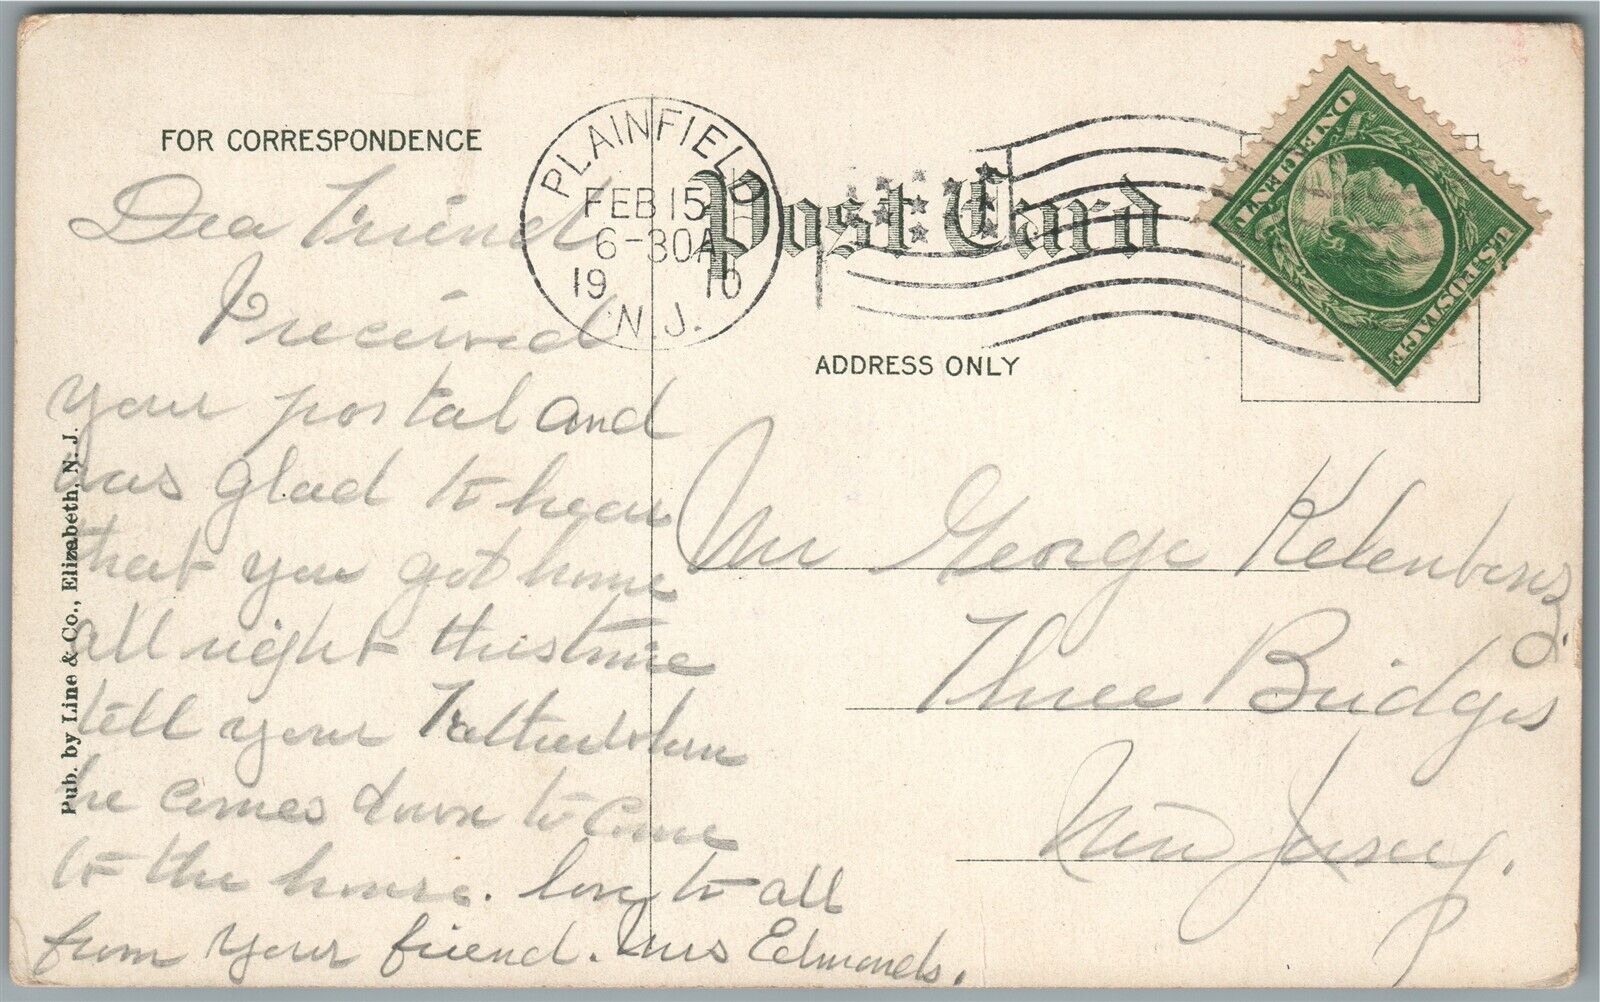 FOR CORRESPONDENCE
Post Card
PLAINFIELD
FEB 15
6-30A
19 10
N.J.
ONE CENT
U.S. POSTAGE
ADDRESS ONLY
Dea Friend
I received
your postal and
was glad to hear
that you got home
all right this time
tell your Father when
he comes down to come
to the house. love to all
from your friend. Mrs Edmonds.
Mr George
Three Bridges
New Jersey.
Pub. by Line & Co., Elizabeth, N. J.